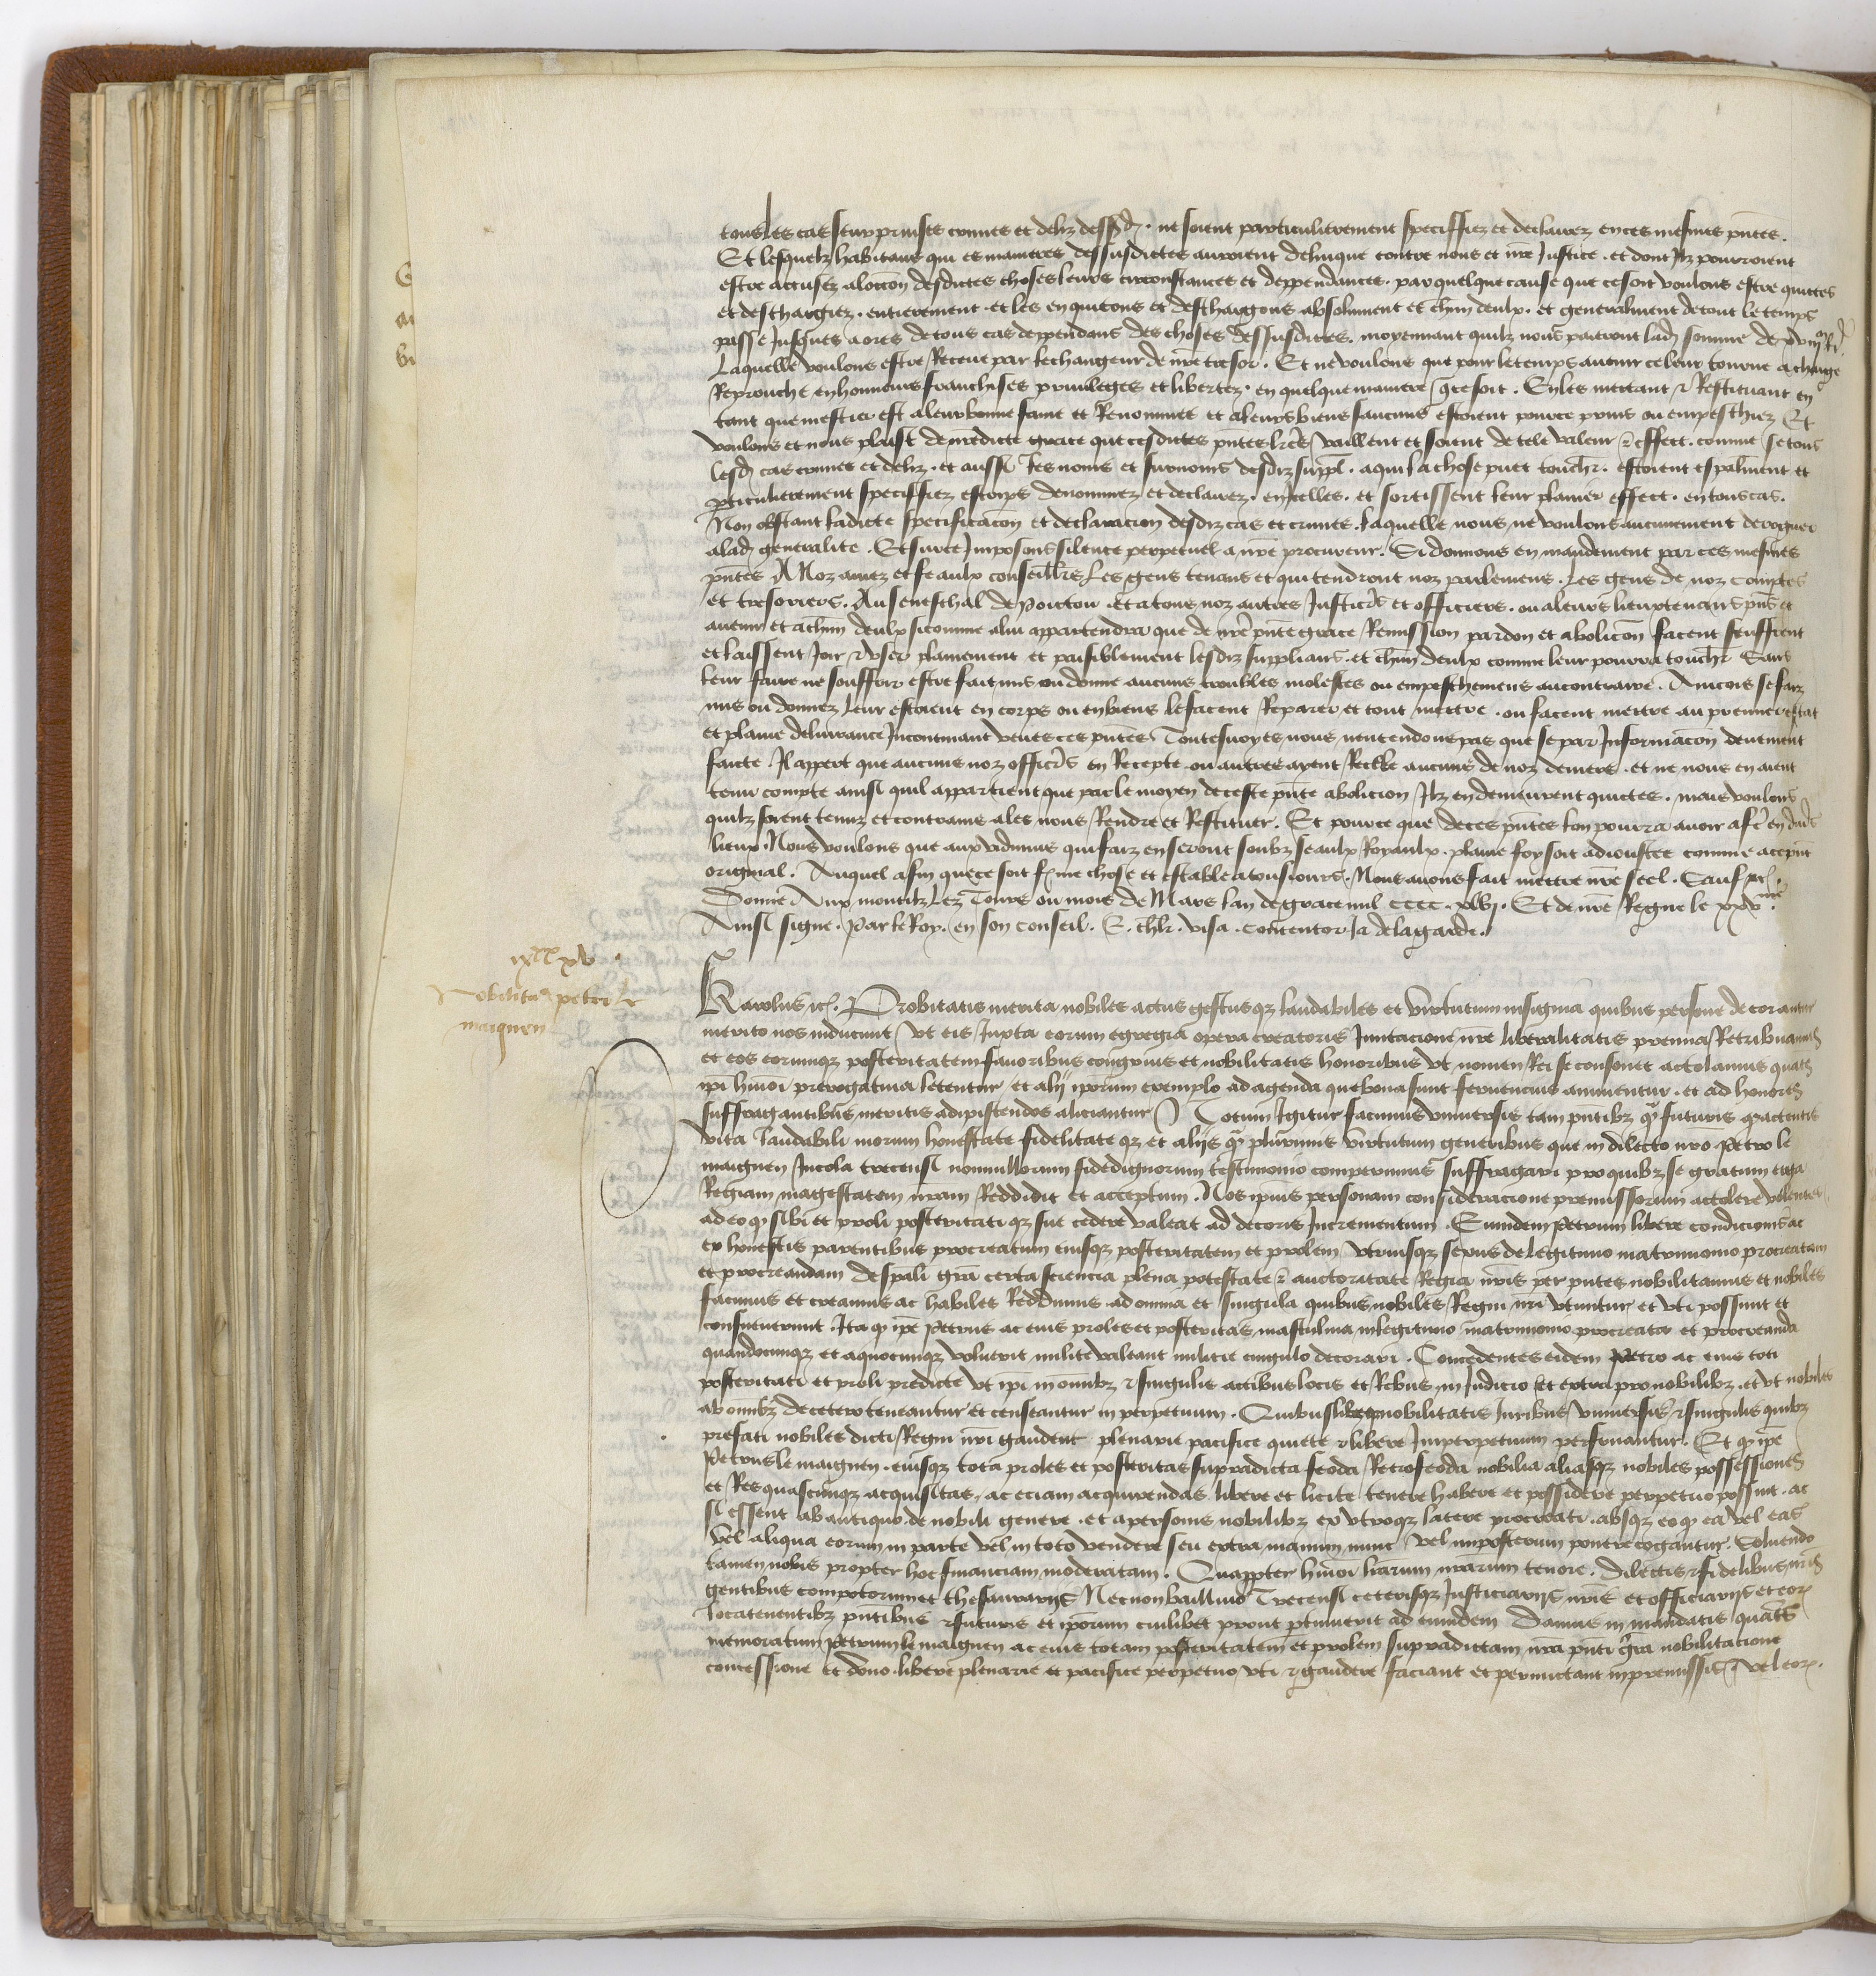 tous les cas seurprinses crimes et deliz dessusd. ne soient particulierement speciffiez et declairez en ces mesmes pñtes.
Et lesquelz habitans qui es manieres dessusdictes auroient delinque contre nous et nr̃e Justice. et dont Ilz pourroient
estre accusez alocc̃on desdictes choses leurs circonstances et deppendances. par quelque cause que ce soit voulons estre quictes
et deschargiez. entierement. et les en quictons et deschargons absolument et ch̃un deulx. et generalment de tout le temps
passe Jusques a ores de tous cas deppendans des choses dessusdictes. moyennant quilz nous paieront lad somme de
Laquelle voulons estre Receue par le changeur de nr̃e tresor. Et ne voulons que pour le temps auenir ce leur tourne a charge
Reprouche en honneurs franchises priuileges et libertez. en quelque maniere q̃ ce soit. En les mettant & Restituant en
tant que mestier est a leur bonne fame et Renommee et a leurs biens saucuns estoient pource prins ou empeschiez Et
voulons et nous plaist de nr̃edicte grace que cesdictes pñtes lr̃es vaillent et soient de tele valeur & effect. comme se tous
lesd cas crimes et deliz. et aussi les noms et surnoms desdiz suppl. a qui la chose puet touch̃r. estoient esp̃alment et
p̃ticulierement speciffiez escrips denommez et declairez. en Icelles. et sortissent leur planier effect. en tous cas.
Non obstant ladicte specificac̃on et declaracion desdiz cas et crimes. Laquelle nous ne voulons aucunement deroguer
a lad generalite. Et sur ce Imposons silence perpetuel a nr̃e procureur. Si donnons en mandement par ces mesmes
pñtes A Noz amez et feaulx conseill̃rs Les gens tenans et qui tendront noz parlemens. Les gens de noz comptes
et tresoriers. Au seneschal de Poictou. et a tous noz autres Justic̃rs et officiers. ou a leurs lieuxtenans pñs et
auenir et a ch̃un deulx si comme a lui appartendra que de nr̃e pñte grace Remission pardon et abolic̃on facent seuffrent
et laissent Joir & vser plainement et paisiblement lesdiz supplians. et ch̃un deulx comme leur pourra touch̃r Sans
leur faire ne souffrir estre fait mis ou donne aucuns troubles molestes ou empeschemens au contraire. Aincois se faiz
mis ou donnez leur estoient en corps ou en biens le facent Reparer et tout mettre. ou facent mettre au premier estat
et plaine deliurance Incontinant veues ces pñtes Toutesuoyes nous nentendons pas que se par Informac̃on deuement
faicte Il appert que aucuns noz offic̃rs en Recepte ou autres ayent Recelé aucuns de noz deniers. et ne nous en aient
tenu compte ainsi quil appartient que par le moyen de ceste pñte abolicion Ilz en demeurent quictes. mais voulons
quilz soient tenuz et contrains a les nous Rendre et Restituer. Et pource que de ces pñtes lon pourra auoir afẽ en diũs
lieux. Nous voulons que aux vidimus qui faiz en seront soubz seaulx Royaulx. plaine foy soit adioustee comme a ce pñt
original. Auquel afin que ce soit ferme chose et estable a tousiours. Nous auons fait mettre nr̃e seel. Sauf etc.
Donne Aux montilz Lez Tours ou mois de Mars Lan de grace mil CCCC. xlvj. Et de nr̃e Regne le xxvme.
Ainsi signe. Par le Roy. en son Conseil. E. ch̃lr. visa. Contentor Ja delagarde.
ixccxv
Nobilitac̃o petri le
maignen
Karolus etc. Probitatis merita nobiles actus gestusqz laudabiles et virtutum insignia quibus persone decorantur
merito nos inducunt Vt eis Juxta eorum egregia opera creatoris Imitacione nr̃e liberalitatis premia Retribuamus
et eos eorumqz posteritatem fauoribus congruis et nobilitatis honoribus vt nomen Rei se consonet attolamus quatẽs
ip̃i hm̃oi prerogatiua letentur et alij ip̃orum exemplo ad agenda que bona sunt feruencius animentur. et ad honores
suffragantibus meritis adipiscendos aliciantur Notum Igitur facimus vniuersis tam pñtibz q̃ futuris q̃ actentis
vita laudabili morum honestate fidelitate qz et alijs q̃ plurimis virtutum generibus que in dilecto nr̃o Petro le
maignen Incola trecensi nonnullorum fidedignorum testimonio comperimus suffragari pro quibz se gratum erga
Regiam magestatem nr̃am Reddidit et acceptum. Nos ip̃ius personam consideracione premissorum attolere volentes
adeo q̃ sibi et proli posteritati qz sue cedere valeat ad decoris Incrementum. Eumdem Petrum libere condicionis ac
ex honestis parentibus procreatum eiusqz posteritatem et prolem vtriusqz sexus de legitimo matrimonio procreatam
et procreandam de sp̃ali gr̃a certa sciencia plena potestate & auctoritate Regia nr̃is per pñtes nobilitamus et nobiles
facimus et creamus ac habiles Reddimus ad omnia et singula quibus nobiles Regni nr̃i vtuntur et vti possunt et
consueuerunt. Ita q̃ ip̃e Petrus ac eius proles et posteritas masculina in legitimo matrimonio procreata et procreanda
quandocunqz et aquocunqz voluerit milite valeant milicie cingulo decorari. Concedentes eidem Petro ac eius toti
posteritati et proli predicte vt ip̃i in om̃ibz & singulis actibus locis et Rebus in Judicio et extra pro nobilibz. et vt nobiles
ab om̃ibz decetero teneantur et censeantur in perpetuum. Quibuslibetqz nobilitatis Juribus vniuersis & singulis quibz
prefati nobiles dicti Regni nr̃i gaudent plenarie pacifice quiete & libere Imperpetuum perfruantur. Et q̃ ip̃e
Petrus le maignen. eiusqz tota proles et posteritas supradicta feoda Retrofeoda nobilia aliasqz nobiles possessiones
et Res quascunqz acquisitas. ac eciam acquirendas libere et licite tenere habere et possidere perpetuo possint. ac
si essent ab antiquo de nobili genere. et a personis nobilibz ex vtroqz latere procreati. absqz eo q̃ ea vel eas
vel aliqua eorum in parte vel in toto vendere seu extra manum nunc vel imposterum ponere cogantur. Soluendo
tamen nobis propter hoc financiam moderatam. Quapropter hm̃oi lr̃arum nr̃arum tenore. Dilectis & fidelibus nr̃is
gentibus compotorum et thesaurarijs Necnon bailliuo Trecensi ceterisqz Justiciarijs nr̃is et officiarijs et eor
locatenentibz pñtibus & futuris et ip̃orum cuilibet prout p̃tinuerit ad eumdem Damus in mandatis quatẽs
memoratum Petrum le maignen ac eius totam posteritatem et prolem supradictam nr̃a pñti gr̃a nobilitacione
concessione et dono. libere plenarie et pacifice perpetuo vti & gaudere faciant et permictant in premissis vel eor.